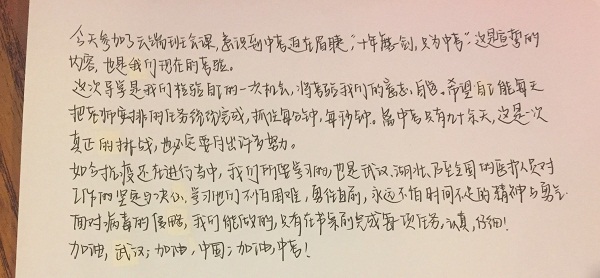 今天参加了云端班会课,意识到中考迫在眉睫,“十年磨一剑,只为中考”这是宣誓的
内容,也是我们现在的考验。
这次导学是我们检验自己的一次机会,将考验我们的意志、自觉。希望自己能每天
把老师安排的任务统统完成,抓住每分钟,每秒钟。离中考只有九十余天,这是一次
真正的挑战,也必定要付出许多努力。
如今抗疫还在进行当中,我们所要学习的,也是武汉、湖北、乃至全国的医护人员对
工作的坚定与决心,学习他们不怕困难,勇往直前,永远不怕时间不足的精神与勇气。
面对病毒的侵略,我们能做的,只有在书桌前完成每一项任务,认真,仔细!
加油,武汉;加油,中国;加油,中考!